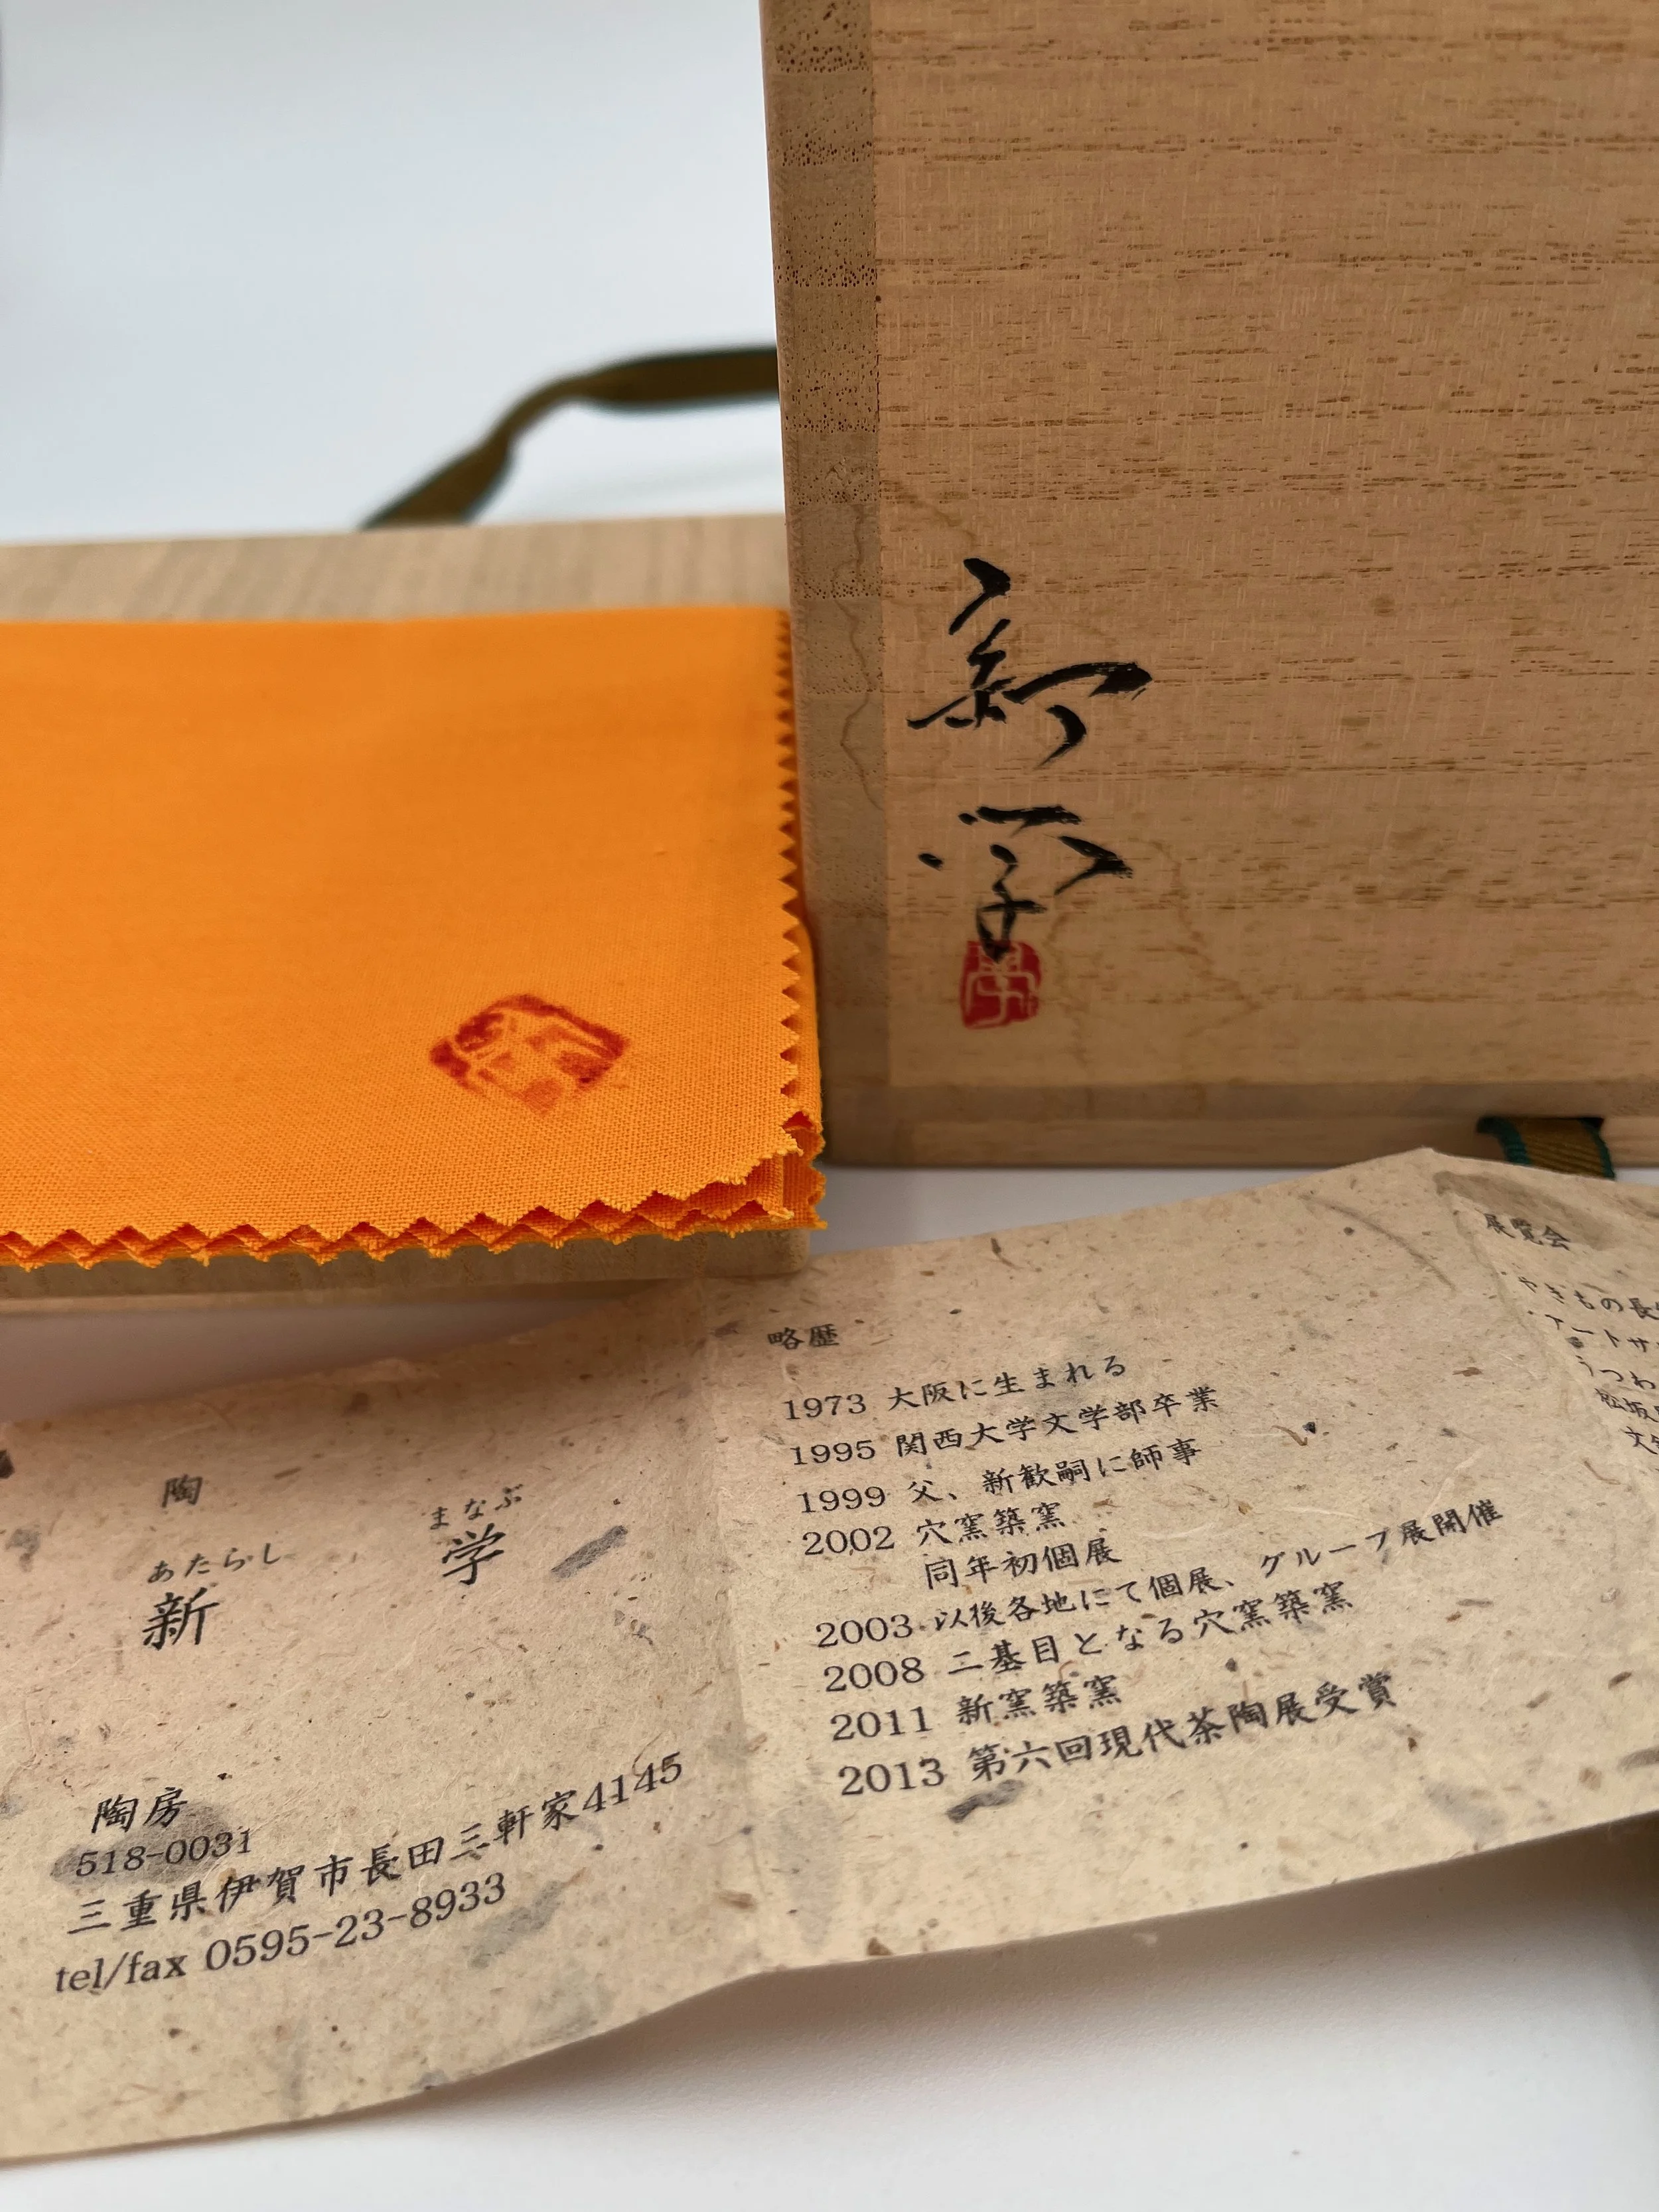 新
学
學
陶
あたらし
新
まなぶ
学
陶房
518-0031
三重県伊賀市長田三軒家4145
tel/fax 0595-23-8933
略歴
1973 大阪に生まれる
1995 関西大学文学部卒業
1999 父、新歓嗣に師事
2002 穴窯築窯
同年初個展
2003 以後各地にて個展、グループ展開催
2008 二基目となる穴窯築窯
2011 新窯築窯
2013 第六回現代茶陶展受賞
展覧会
・やきもの長
・アートサ
うつわ
松坂
文